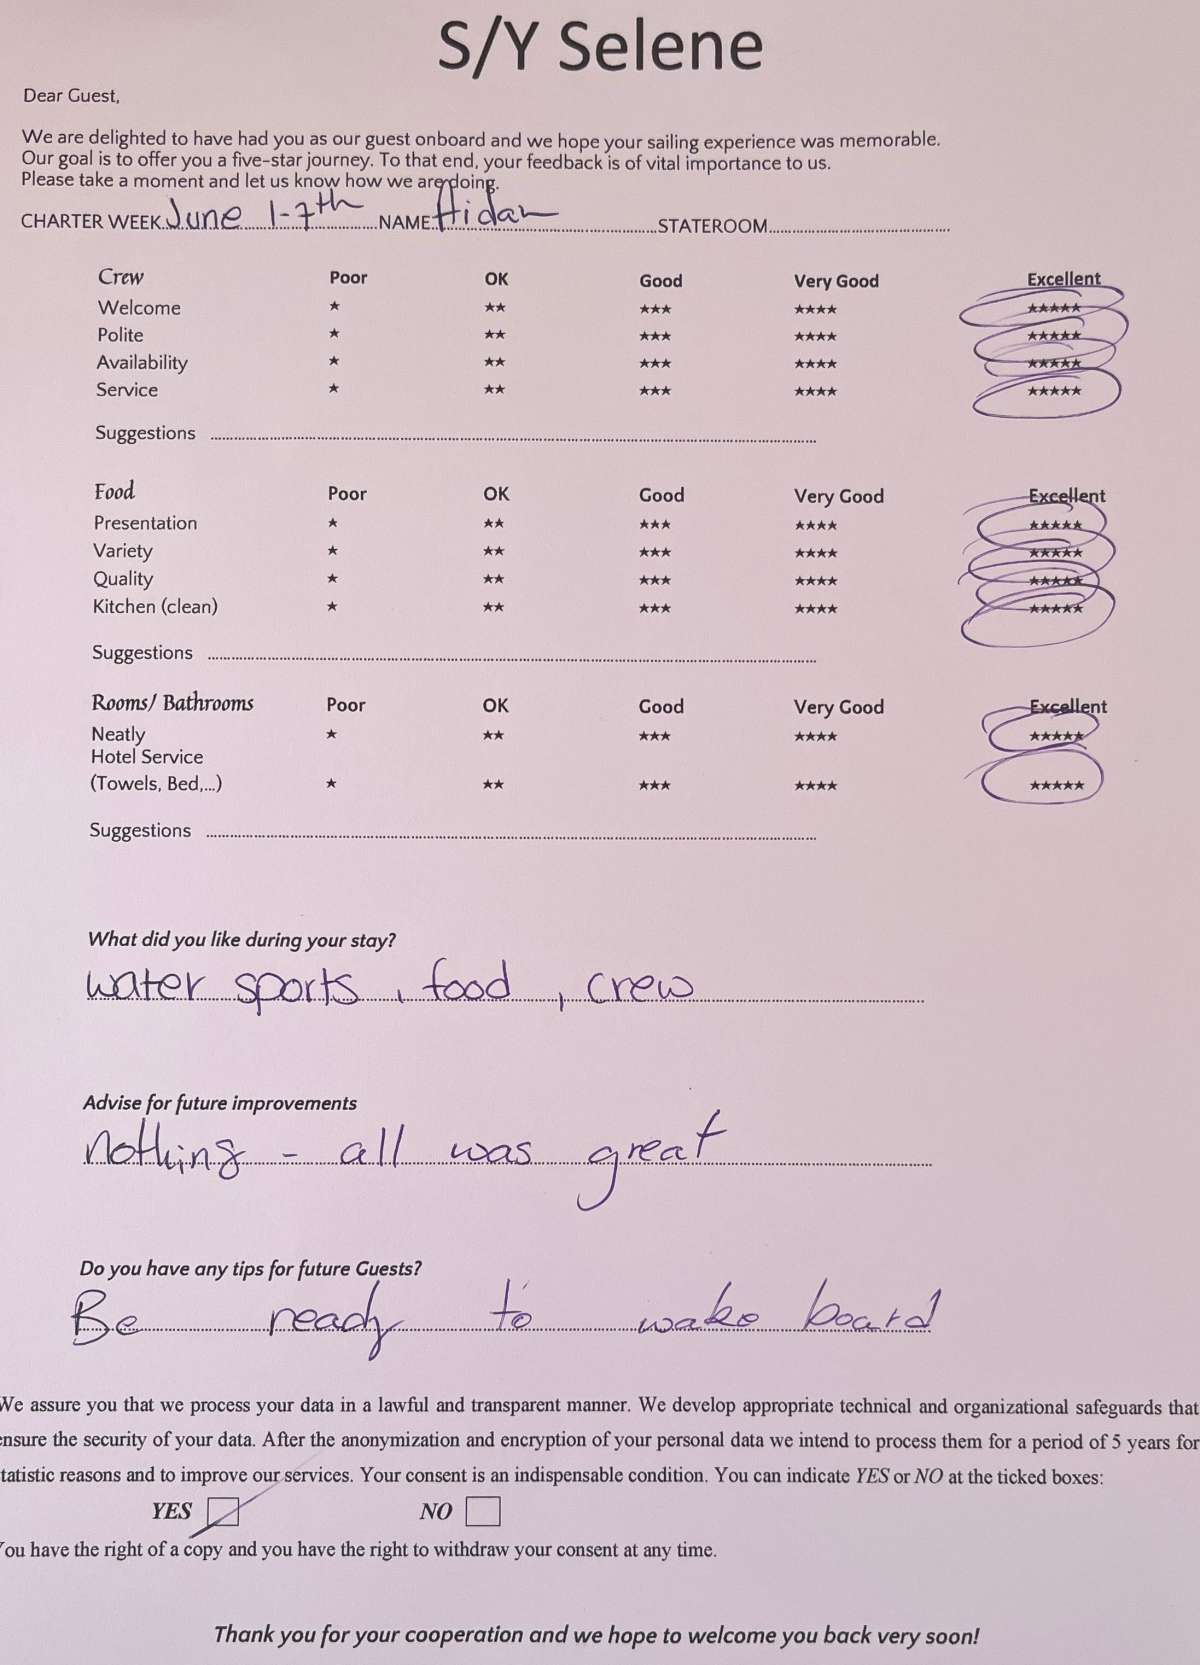 S/Y Selene
Dear Guest,
We are delighted to have had you as our guest onboard and we hope your sailing experience was memorable.
Our goal is to offer you a five-star journey. To that end, your feedback is of vital importance to us.
Please take a moment and let us know how we are doing.
CHARTER WEEK June 1-7th NAME: Aidan STATEROOM
Crew Poor OK Good Very Good Excellent
Welcome ★ ★★ ★★★ ★★★★ ★★★★★
Polite ★ ★★ ★★★ ★★★★ ★★★★★
Availability ★ ★★ ★★★ ★★★★ ★★★★★
Service ★ ★★ ★★★ ★★★★ ★★★★★
Suggestions
Food Poor OK Good Very Good Excellent
Presentation ★ ★★ ★★★ ★★★★ ★★★★★
Variety ★ ★★ ★★★ ★★★★ ★★★★★
Quality ★ ★★ ★★★ ★★★★ ★★★★★
Kitchen (clean) ★ ★★ ★★★ ★★★★ ★★★★★
Suggestions
Rooms/ Bathrooms Poor OK Good Very Good Excellent
Neatly ★ ★★ ★★★ ★★★★ ★★★★★
Hotel Service
(Towels, Bed,...) ★ ★★ ★★★ ★★★★ ★★★★★
Suggestions
What did you like during your stay?
water sports, food, crew
Advise for future improvements
nothing - all was great
Do you have any tips for future Guests?
Be ready to wake board
We assure you that we process your data in a lawful and transparent manner. We develop appropriate technical and organizational safeguards that
ensure the security of your data. After the anonymization and encryption of your personal data we intend to process them for a period of 5 years for
tatistic reasons and to improve our services. Your consent is an indispensable condition. You can indicate YES or NO at the ticked boxes:
YES NO
You have the right of a copy and you have the right to withdraw your consent at any time.
Thank you for your cooperation and we hope to welcome you back very soon!